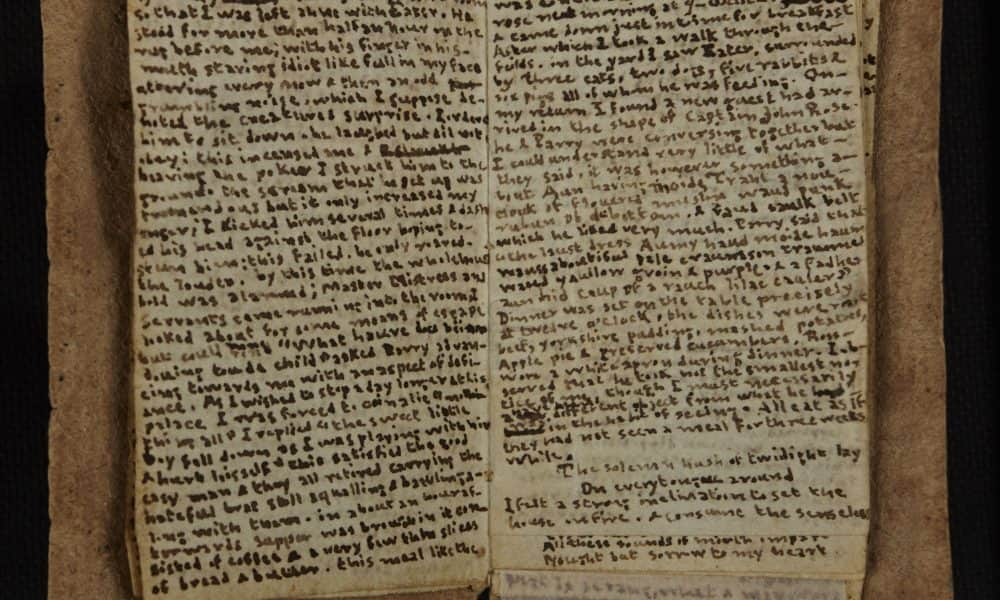 s. that I was left alone with Eater. He
stood for more than half an hour on the
rug before me, with his finger in his
mouth staring idiot like full in my face
uttering every now & then an odd
grumbling noise, which I suppose de-
noted the creatures surprise. I ordered
him to sit down. he laughed but did not
obey: this incensed me &
heaving the poker I struck him to the
ground. the scream that he set up was
tremendous but it only increased my
anger, I kicked him several times & dash
ed his head against the floor hoping to
stun him: this failed. he only roared
the louder. by this time the whole hous
hold was alarmed; Master Mistress and
servants came running into the room. I
looked about for some means of escape
but could "What hauve
douing touda child" asked Parry advan-
cing towards me with an aspect of defi-
ance. As I wished to stop a day longer at his
palace I was forced to
thing all" I replied "the sweet little
boy fell down as I was playing with him
& hurt himself" this satisfied the good
easy man & they all retired carrying the
hateful brat still squalling & bawling a-
long with them. in about an hour af-
terwards supper was brought in it con
sisted of coffee & a very few thin slices
of bread & butter. this meal like the
rose next morning at
& came down just in time for breakfast
After which I took a walk through the
fields. in the yard I saw Eater, surrounded
by three cats, two dogs, five rabbits &
six pigs all of whom he was feeding. On
my return I found a new guest had ar-
rived in the shape of Captain John Ross.
he & Parry were conversing together but
I could understand very little of what
they said. it was however something a-
bout Aun having moide
clouk of floured muslin waud punk
ruban at de bottom, & faud saulk belt
which he liked very much. Parry said that
"the laust dress Aumy haud moide haur
waus a bautiful pele craumson traummed
waud yaullow groin & purple. & a fadher
aun hid caup of a rauch lilac cauler"
Dinner was set on the table precisely
at twelve o'clock. the dishes were, roast
beef, yorkshire pudding, mashed potatoes,
Apple pie & preserved cucumbers. Ross
wore a white apron during dinner. I ob-
served that he took not the smallest no-
tice of me. though I must necessarily
different object from what he
in the habit of seeing. All eat as if
they had not seen a meal for three weeks
while.
The solemn hush of twilight lay
On everyone around
I felt a strong inclination to set the
house on fire. & consume the senseless
All these sounds of mirth impart
Nought but sorrow to my heart